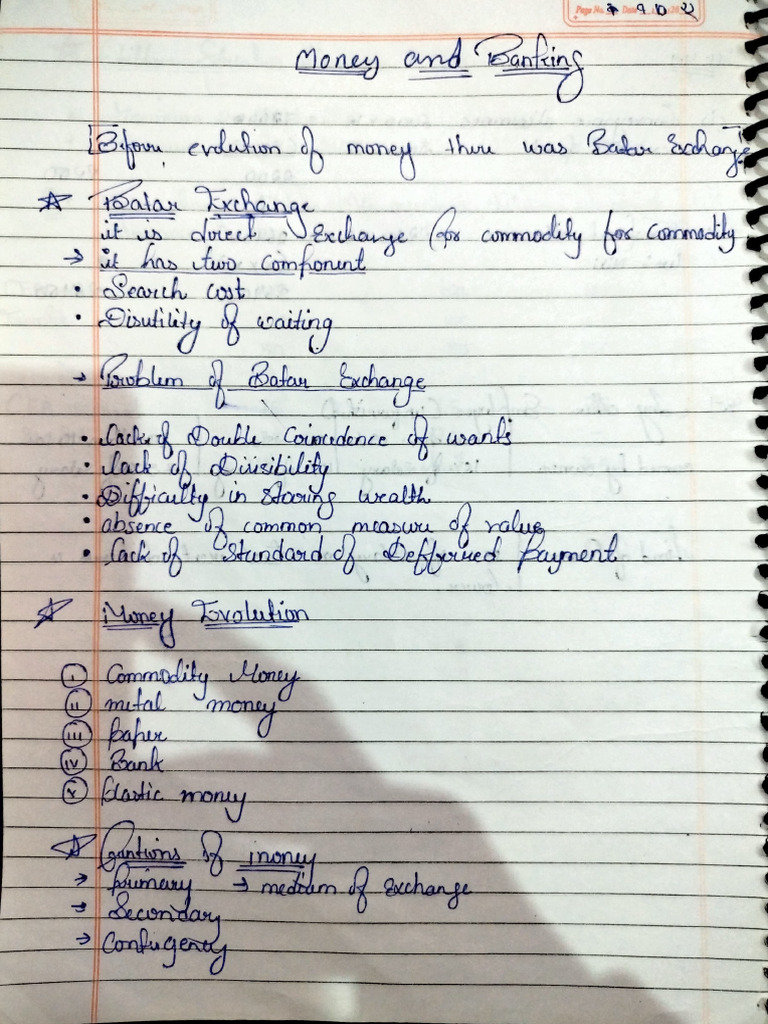 Page No. Date 9 10 22
Money and Banking
[Before evolution of money there was Batar Exchange]
☆ Batar Exchange
it is direct Exchange (for commodity for commodity
→ it has two component
• Search cost
• Disutility of waiting
→ Problem of Batar Exchange
• Lack of Double Coincedence of wants
• Lack of Divisibility
• Difficulty in Staring wealth
• absence of common measure of value
• Lack of Standard of Defferred Payment
☆ Money Evolution
(i) Commodity Money
(ii) metal money
(iii) paper
(iv) Bank
(v) Plastic money
☆ of money
→ primary → medium of Exchange
→ Secondary
→ Contugency